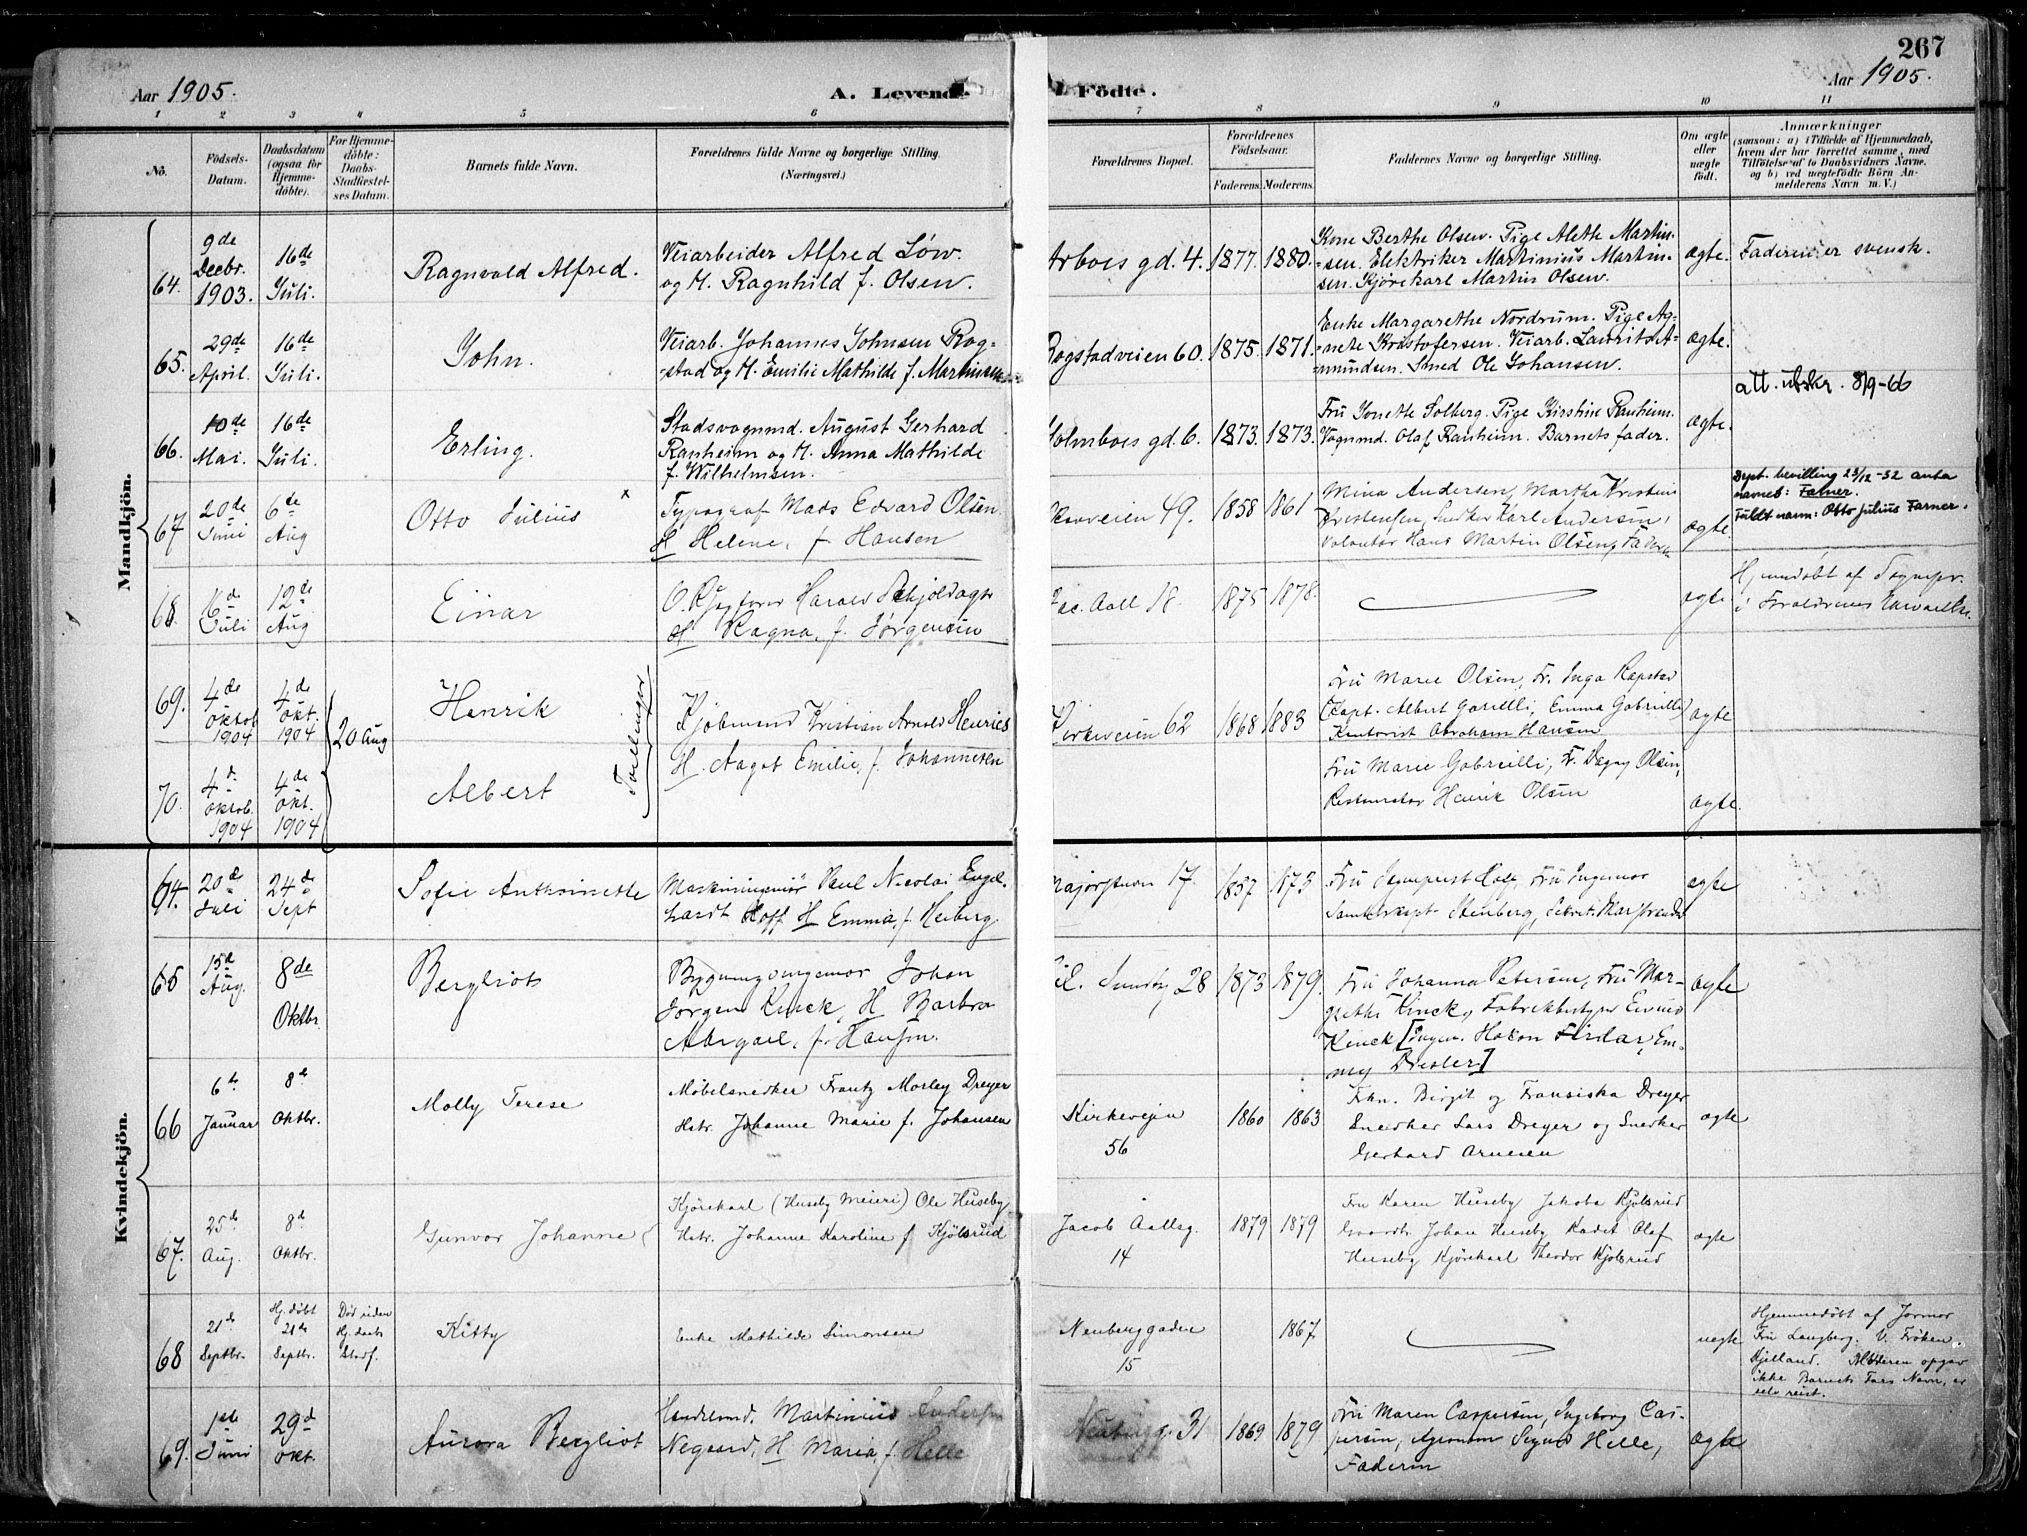 267
Aar 1905.
A. Levende
Födte.
Aar 1905.
1 2 3 4 5 6 7 8 9 10 11
No.
Födsels-
Datum.
Daabsdatum
(ogsaa for
Hjemme-
döbte).
For Hjemme-
döbte:
Daabs-
Stadfæstel-
ses Datum.
Barnets fulde Navn.
Forældrenes fulde Navne og borgerlige Stilling.
(Næringsvei.)
Forældrenes Bopæl.
Forældrenes
Födselsaar.
Faderens. Moderens.
Faddernes Navne og borgerlige Stilling.
Om ægte
eller
uægte
födt.
Anmærkninger
(saasom: a) i Tilfælde af Hjemmedaab,
hvem der har forrettet samme, med
Tilföielse af to Daabsvidners Navne.
og b) ved uægtefödte Börn An-
melderens Navn m. V.)
Mandkjön.
64.
9de
Decbr.
1903.
16de
Juli.
Ragnvald Alfred.
Veiarbeider Alfred Löw
og H. Ragnhild f. Olsen.
Arboes gd. 4.
1877. 1880.
Kone Berthe Olsen. Pige Alette Martin-
sen. Elektriker Martinius Martin-
sen. Kjörekarl Martin Olsen.
ægte.
Faderen er svensk.
65.
29de
April.
16de
Juli.
John.
Veiarb. Johannes Johnsen Rog-
stad og H. Emilie Mathilde f. Martinsen
Rogstadveien 60.
1875. 1871.
Enke Margarethe Nordrum. Pige Ag-
nete Kristofersen. Veiarb. Laurits A-
mundsen. Smed Ole Johansen.
ægte.
att. utskr. 8/9-66
66.
10de
Mai.
16de
Juli.
Erling.
Stadsvognmd. August Gerhard
Ranheim og H. Anna Mathilde
f. Wilhelmsen.
Holmboes gd. 6.
1873. 1873.
Fru Jonette Solberg. Pige Kirstine Ranheim.
Vognmd. Olaf Ranheim. Barnets fader.
ægte.
67
20de
Juni
6de
Aug
Otto Julius x
Typograf Mads Edvard Olsen
H Helene, f. Hansen
veien 49.
1858 1861
Mina Andersen, Martha Kristine
Kristensen, Snedker Karl Andersen,
Volontør Hans Martin Olsen, Faderen
ægte
Dept. bevilling 23/12-52 anta
navnet: Farner.
Fuldt navn: Otto Julius Farner.
68.
6d
Juli
12de
Aug
Einar
Harald Skjoldager
H Ragna, f. Jørgensen
Aall 18
1875 1878.
ægte
Hjemmedöbt af Sognepr.
i Forældrenes
69.
4de
Oktob
1904
4de
Okt.
1904
20 Aug
Henrik
Tvillinger
Kjøbmand Kristian Arnold Henries
H. Aagot Emilie, f. Johannesen
Kirkeveien 62
1868 1883
Fru Marie Olsen, Fr. Inga Rapstad
Kapt. Albert Gabrielli, Emma Gabrielli
Kontorist Abraham Hansen
ægte
70.
4d.
Oktob.
1904
4de
Okt.
1904
Albert
Fru Marie Gabrielli, Fr. Dagny Olsen,
Restauratør Henrik Olsen
ægte.
Kvindekjön.
64.
20de
Juli
24de
Sept
Sofie Anthoinette
Maskiningeniør Paul Nicolai Engel-
hardt Hoff H Emma, f. Heiberg
Majorstuen 17.
1857 1873
Fru Sogneprest Hoff, Fru Ingeniør
Stenberg, Sekret. Marstrander
ægte
65
15d
Aug.
8de
Oktbr
Bergliot
Bygningsingeniør Johan
Jørgen Kinck, H Barbra
Abigael, f. Hansen.
Eil. Sundtsg 28
1873 1879.
Fru Johanna Petersen, Fru Mar-
grethe Kinck, Fabrikbestyrer Eivind
Kinck [Ingen. Hakon Firdar, Em-
my Dresler]
ægte
66
6de
Januar
8de
Oktbr.
Molly Terese
Møbelsnedker Frantz Morley Dreyer
Hstr. Johanne Marie f. Johansen
Kirkeveien
56
1860 1863
Frkn. Birgit og Fransiska Dreyer
Snedker Lars Dreyer og Snedker
Gerhard Arnesen
ægte
67.
25de
Aug.
8d
Oktbr.
Gunvor Johanne
Kjörekarl (Huseby Meieri) Ole Huseby
Hstr. Johanne Karoline f Kjölsrud
Jacob Aallsg.
14
1879 1879
Fru Karen Huseby Jakoba Kjölsrud
Gaardbr. Johan Huseby Kadet Olaf
Huseby Kjörekarl Theodor Kjölsrud
ægte
68
21de
Septbr.
Hj.döbt
21de
Septbr.
Död uden
Hj.daabs
Stadf.
Kitty
Enke Mathilde Simonsen
Neuberggaden
15
1867
uægte
Hjemmedöbt af Jormor
Fru Langberg. V. Fröken
Kjelland. Moderen opgav
ikke Barnets Fars Navn, er
selv reist.
69.
1ste
Juni
29d
Okt.
Aurora Bergliot
Handelsmd. Martinius Andersen
Negaard, H Maria, f. Helle
Neubergg. 31
1869 1879
Fru Maren Caspersen, Ingeborg Cas-
persen, Agronom Sigurd Helle,
Faderen
ægte